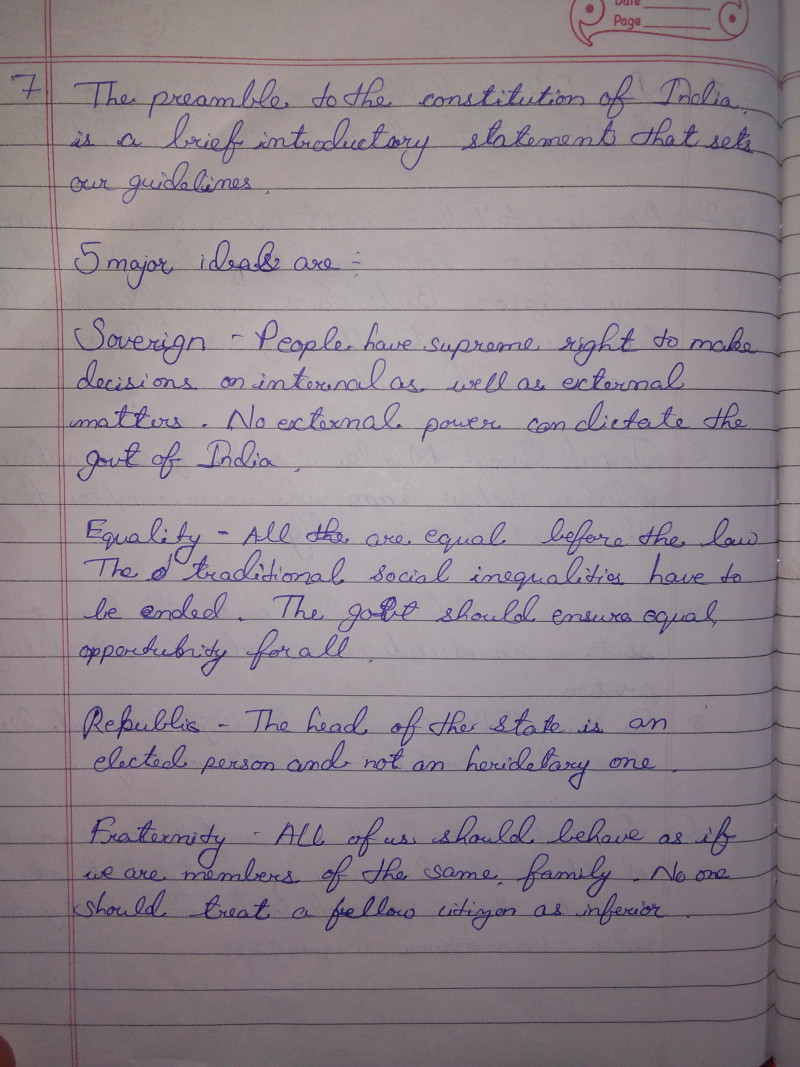 Date
Page
7. The preamble to the constitution of India,
is a brief introductory statement that sets
our guidelines.
5 major ideals are :-
Soverign - People have supreme right to make
decisions on internal as well as external
matters. No external power can dictate the
govt of India.
Equality - All the are equal before the law
The traditional social inequalities have to
be ended. The govt should ensure equal
opportubnity for all.
Republic - The head of the state is an
elected person and not an heridetary one.
Fraternity - All of us should behave as if
we are members of the same family. No one
should treat a fellow citizen as inferior.